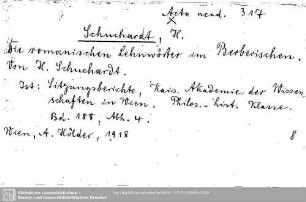 Acta acad. 317
Schuchardt, H.
Die romanischen Lehnwörter im Berberischen.
Von H. Schuchardt.
Ist: Sitzungsberichte, Kais. Akademie der Wissen
schaften in Wien. Philos.-hist. Klasse.
Bd. 188, Abh. 4.
Wien, A. Hölder, 1918
8
Sächsische Landesbibliothek -
Staats- und Universitätsbibliothek Dresden